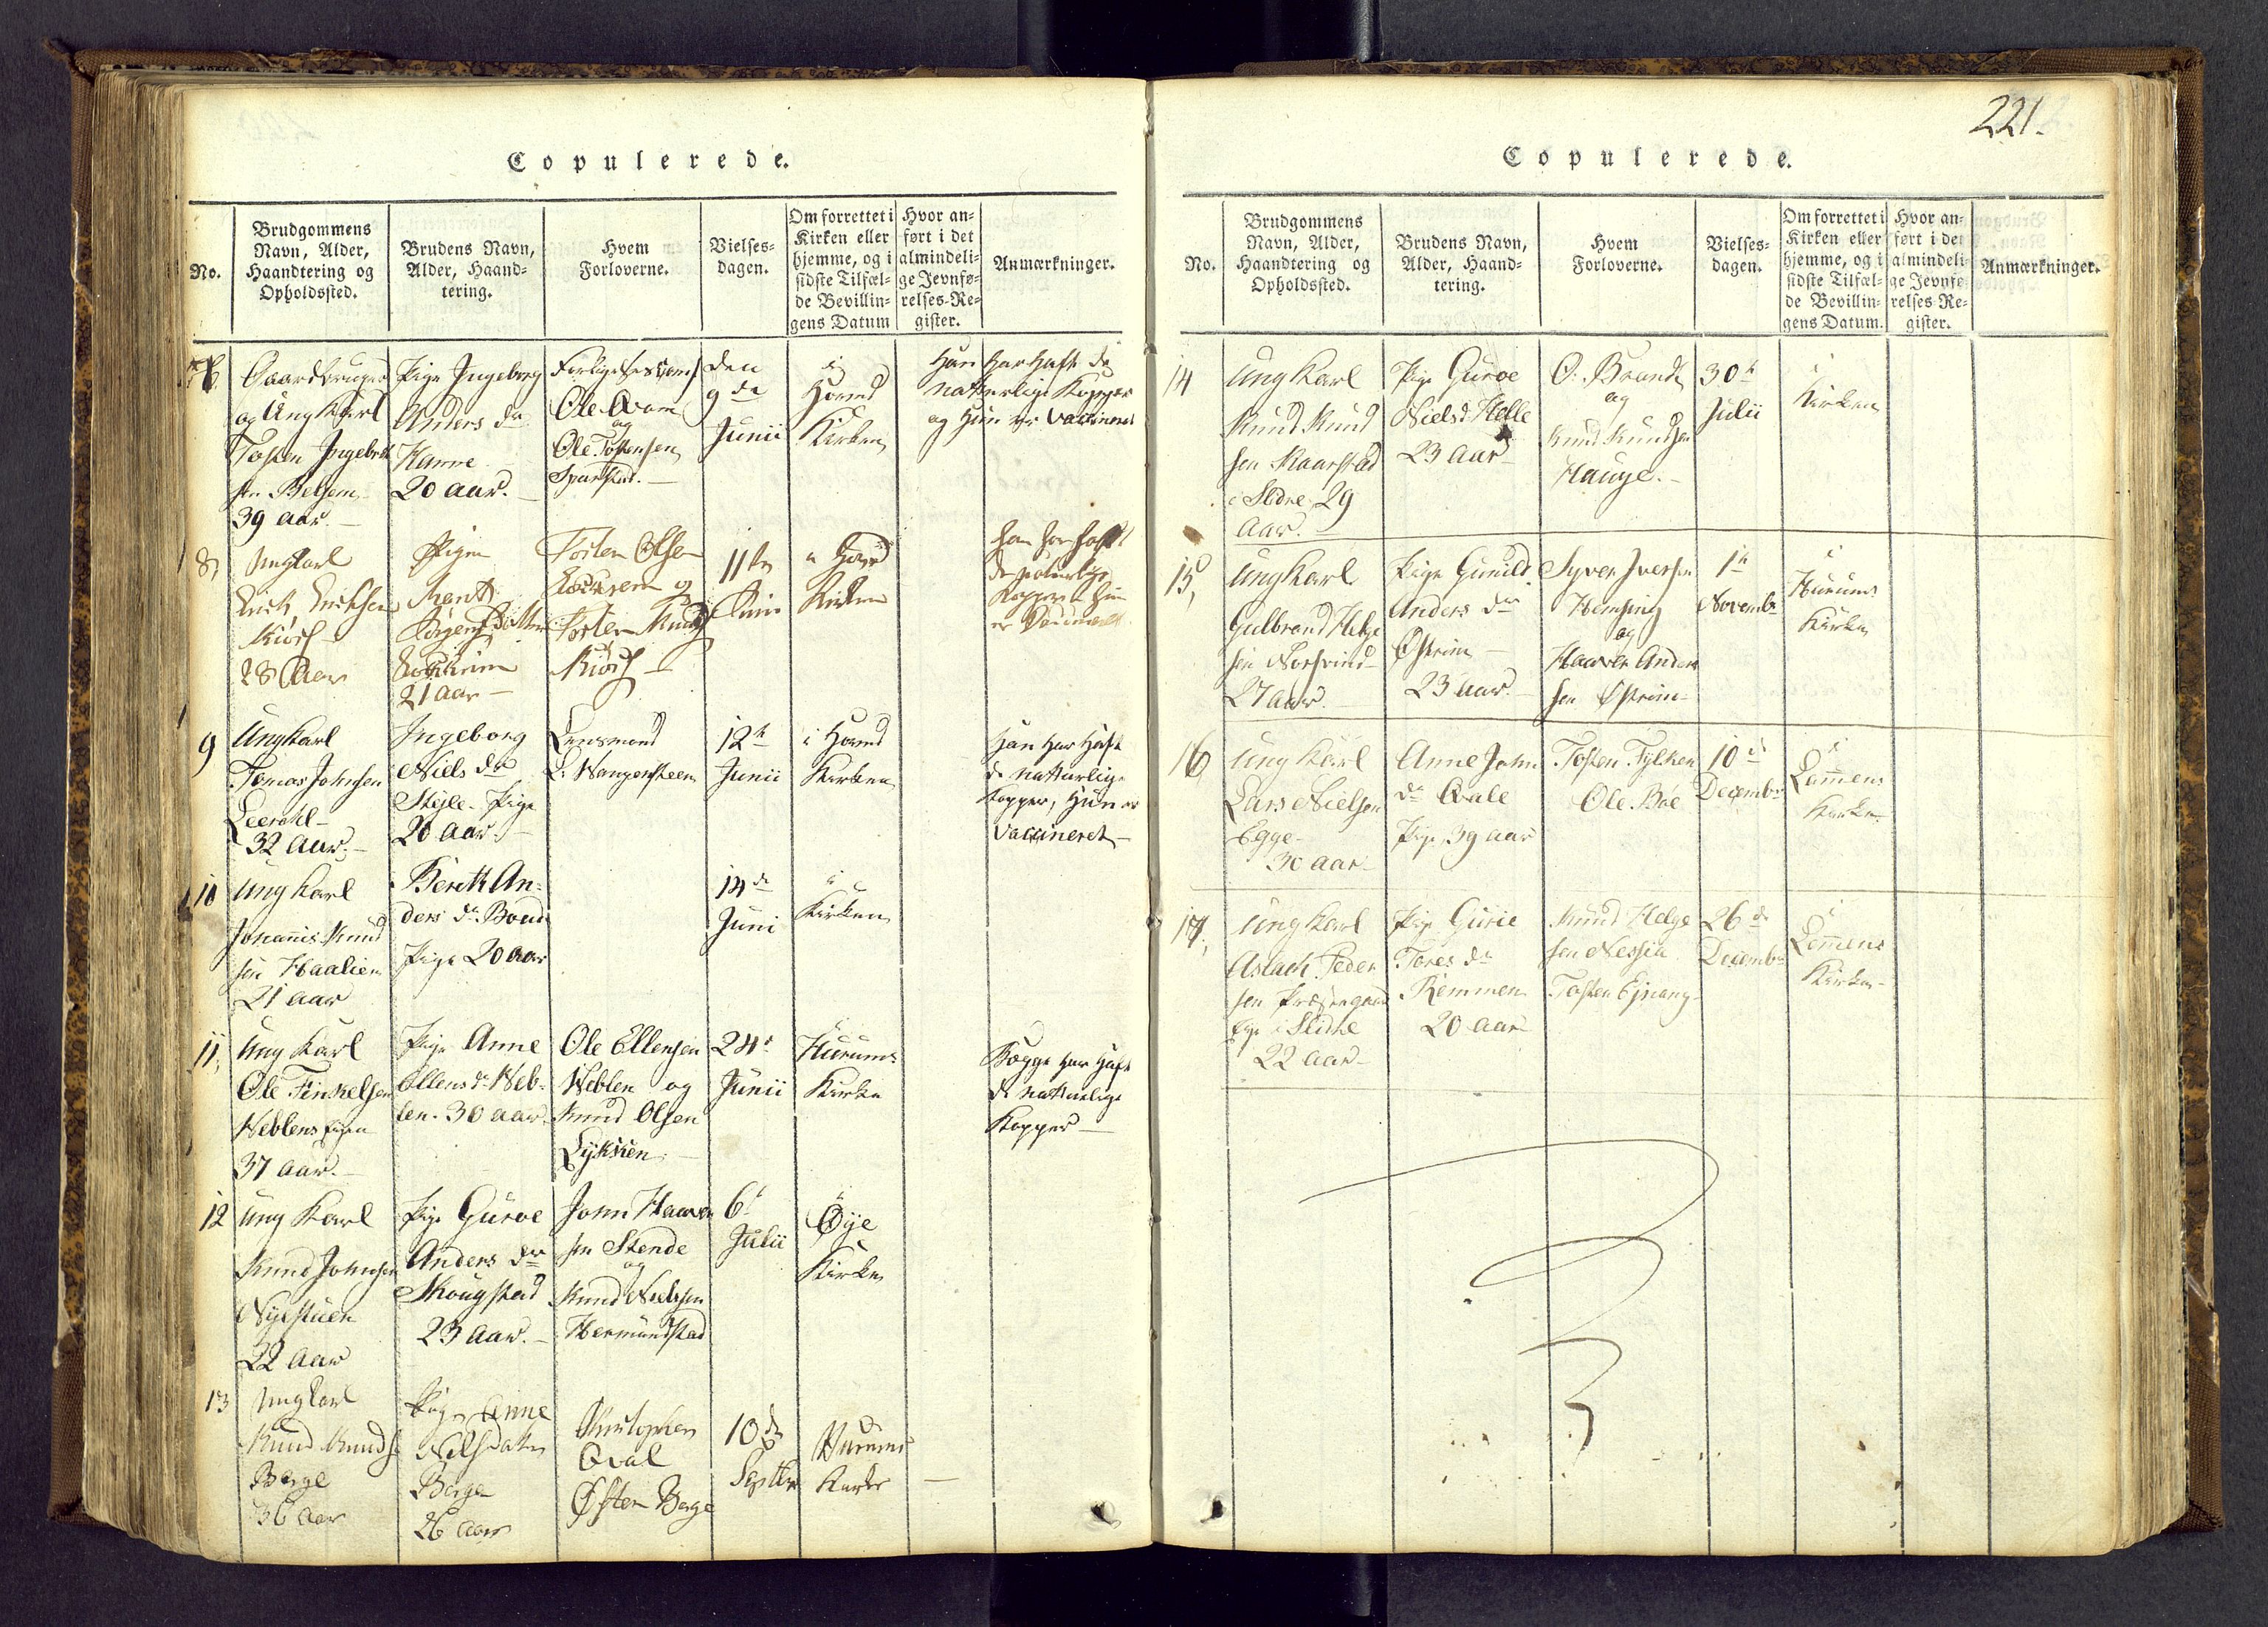 Copulerede.
No.
Brudgommens
Navn, Alder,
Haandtering og
Opholdssted.
Brudens Navn,
Alder, Haand-
tering.
Hvem
Forloverne.
Vielses-
dagen.
Om forrettet i
Kirken eller
hjemme, og i
sidste Tilfæl-
de Bevillin-
gens Datum
Hvor an-
ført i det
almindeli-
ge Jevnfø-
relses-Re-
gister.
Anmærkninger.
Gaardbruger
og Ungkarl
Tosten Ingebret
sen Belsem
39 Aar.
Pige Ingeborg
Anders dr
Kanne
20 aar.
Ole Qvam
og
Ole Tostensen
Sparstad.
den
9de
Junii
i
Hourd
Kirken
Han har haft de
naturlige Kopper
og Hun er vaccineret
8,
Ungkarl
Erich Erichsen
Kiøs
28 Aar
Pigen
Berit
21 aar
Tosten Olsen
og
Tosten Knuds
Kiøs
11te
Junii
i Hourd
Kirken
Han har haft
de naturlige
Kopper Hun
er Vaccineret
9
Ungkarl
Tomas Johnsen
Leerohl
32 Aar.
Ingeborg
Niels dr
Steile Pige
20 aar.
Lensmand
L. Wangensteen
12te
Junii
i Hourd
Kirken
Han har haft
de naturlige
Kopper, Hun er
vaccineret
10
Ungkarl
Johannis Knud
sen Haalien
21 aar
Beret An-
ders dr. Boud
Pige 20 aar
14de
Juni
i
Kirken
11,
Ung Karl
Ole Finkelsen
Weblens
37 aar.
Pige Anne
Ellens dr Web-
len. 30 aar.
Ole Ellensen
Weblen og
Knud Olsen
Lykken.
24de
Junii
Hurums
Kirke
Begge har haft
de naturlige
Kopper
12
Ung Karl
Knud Johnsen
Nystuen
22 Aar
Pige Guroe
Anders dr
Skougstad
23 Aar.
John Haaver
sen Stende
og
Knud Nielsen
Hermundstad
6te
Julii
Øye
Kirke
13
Ungkarl
Knud Knuds
Berge
36 Aar
Pige Anne
Nelsdatter
Berge
26 Aar
Christopher
Qval
Østen Berge
10de
Septbr
Hurums
Kirke
221.
Copulerede.
No.
Brudgommens
Navn, Alder,
Haandtering og
Opholdssted.
Brudens Navn,
Alder, Haand-
tering.
Hvem
Forloverne.
Vielses-
dagen.
Om forrettet i
Kirken eller
hjemme, og i
sidste Tilfæl-
de Bevillin-
gens Datum.
Hvor an-
ført i det
almindeli-
ge Jevnfø-
relses Re-
gister.
Anmærkninger.
14
Ung Karl
Knud Knud
sen Kaarstad
i Slidre 29
Aar.
Pige Guroe
Niels d. Helle
23 Aar
O. Brandt
og
Knud Knudsen
Hauge.
30te
Julii
i
Kirken
15,
Ungkarl
Gulbrand Helge
sen Norsvind
27 aar.
Pige Gunild
Anders dr
Østrim
23 Aar.
Syver Iversen
Hemsing
og
Haaver Anders
sen Østrim
1te
Novembr
i
Hurums
Kirke
16
Ung Karl
Lars Nielsen
Egge
30 aar
Anne John
dr Qvale
Pige 39 aar
Tosten Fylken
Ole Bøe
10de
Decembr
i
Lommens
Kirke
17,
Ung Karl
Aslach Peder
sen
i Slidre
22 aar
Pige Gurie
Tores dr
Remmen
20 aar
Knud Helge
sen
Tosten
26de
Decembr
i
Lommens
Kirke